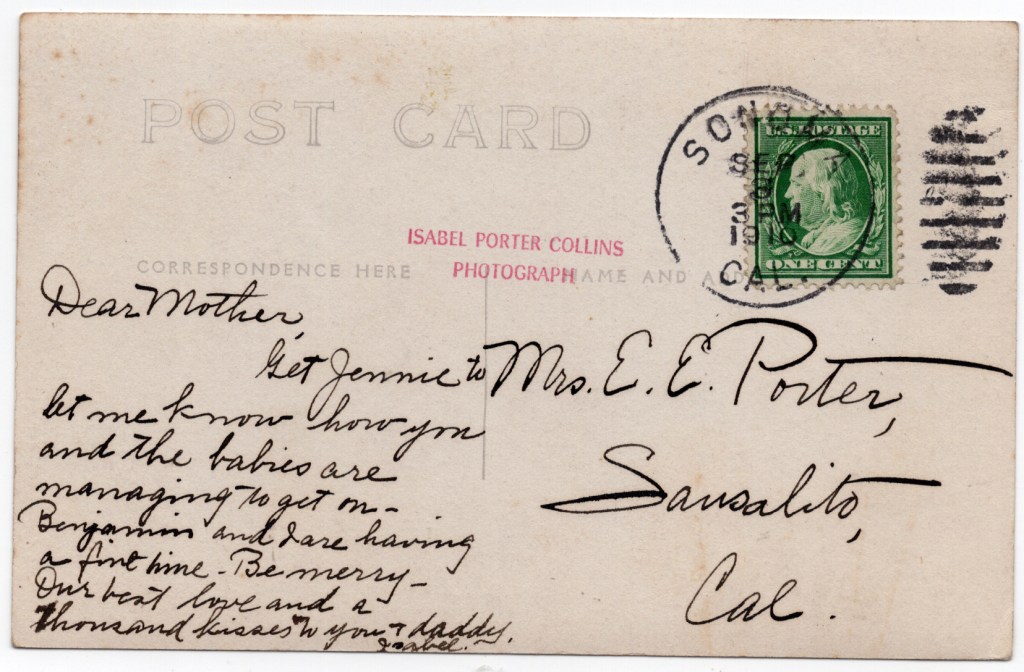 POST CARD
SONOMA
SEP
3 PM
1910
CAL.
U.S. POSTAGE
ONE CENT
ISABEL PORTER COLLINS
PHOTOGRAPH
CORRESPONDENCE HERE
NAME AND
Dear Mother,
Get Jennie to
let me know how you
and the babies are
managing to get on –
Benjamin and I are having
a fine time – Be merry –
Our best love and a
thousand kisses to you + daddy.
Isabel.
Mrs. E. E. Porter,
Sausalito,
Cal.